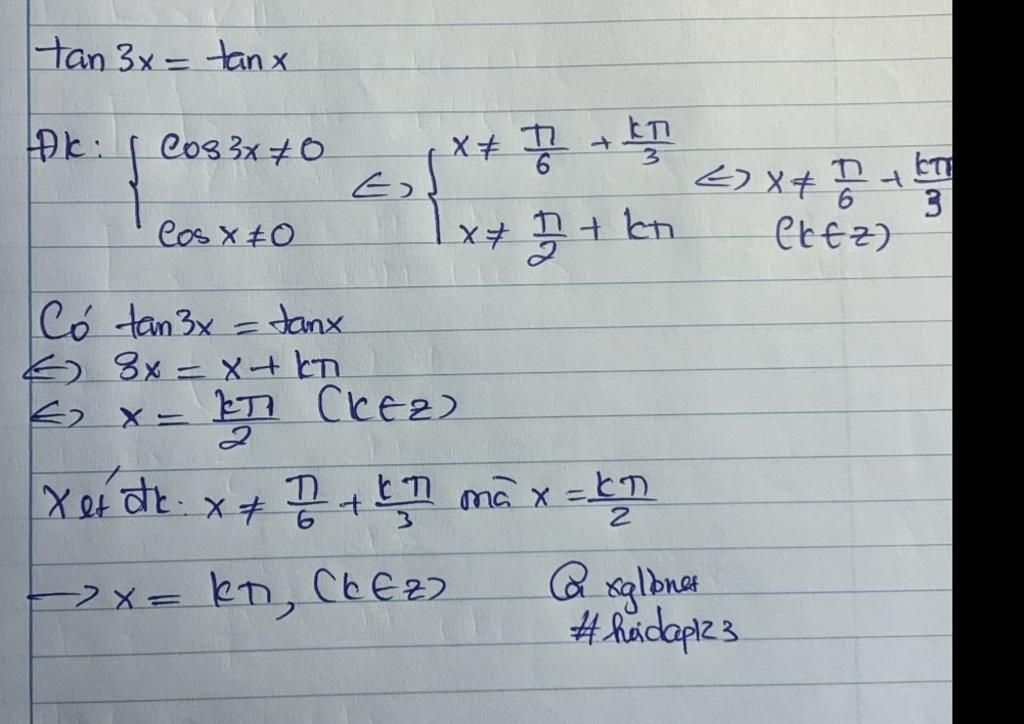 tan 3x = tan x
Đk: { cos 3x ≠ 0 ⇔ { x ≠ π/6 + kπ/3 ⇔ x ≠ π/6 + kπ/3
cos x ≠ 0 x ≠ π/2 + kπ (k∈z)
Có tan 3x = tanx
⇔ 3x = x + kπ
⇔ x = kπ/2 (k∈z)
Xét đk: x ≠ π/6 + kπ/3 mà x = kπ/2
→ x = kπ, (k∈z) @ xglbnet
#hoidap123